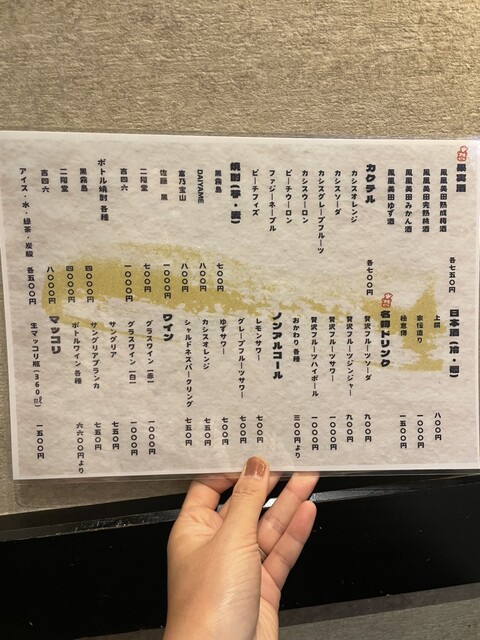 果実酒
鳳凰美田熟成梅酒
鳳凰美田完熟桃酒
鳳凰美田みかん酒
鳳凰美田ゆず酒
各七五〇円
カクテル
各七〇〇円
カシスオレンジ
カシスソーダ
カシスグレープフルーツ
カシスウーロン
ピーチウーロン
ファジーネーブル
ピーチフィズ
焼酎(芋・麦)
黒霧島 七〇〇円
DAIYAME 八〇〇円
富乃宝山 八〇〇円
佐藤 黒 一〇〇〇円
二階堂 七〇〇円
吉四六 一〇〇〇円
ボトル焼酎各種
黒霧島 四〇〇〇円
二階堂 四〇〇〇円
吉四六 八〇〇〇円
アイス・水・緑茶・炭酸 各五〇〇円
日本酒(冷・燗)
上撰 八〇〇円
家伝造り 一〇〇〇円
極意傳 一五〇〇円
名物ドリンク
贅沢フルーツソーダ 九〇〇円
贅沢フルーツジンジャー 九〇〇円
贅沢フルーツサワー 一〇〇〇円
贅沢フルーツハイボール 一〇〇〇円
おかわり各種 三〇〇円より
ノンアルコール
レモンサワー 七〇〇円
グレープフルーツサワー 七〇〇円
ゆずサワー 七〇〇円
カシスオレンジ 七五〇円
シャルドネスパークリング 七五〇円
ワイン
グラスワイン(赤) 一〇〇〇円
グラスワイン(白) 一〇〇〇円
サングリア 七五〇円
サングリアブランカ 七五〇円
ボトルワイン各種 六六〇〇円より
マッコリ
生マッコリ瓶(360ml) 一五〇〇円